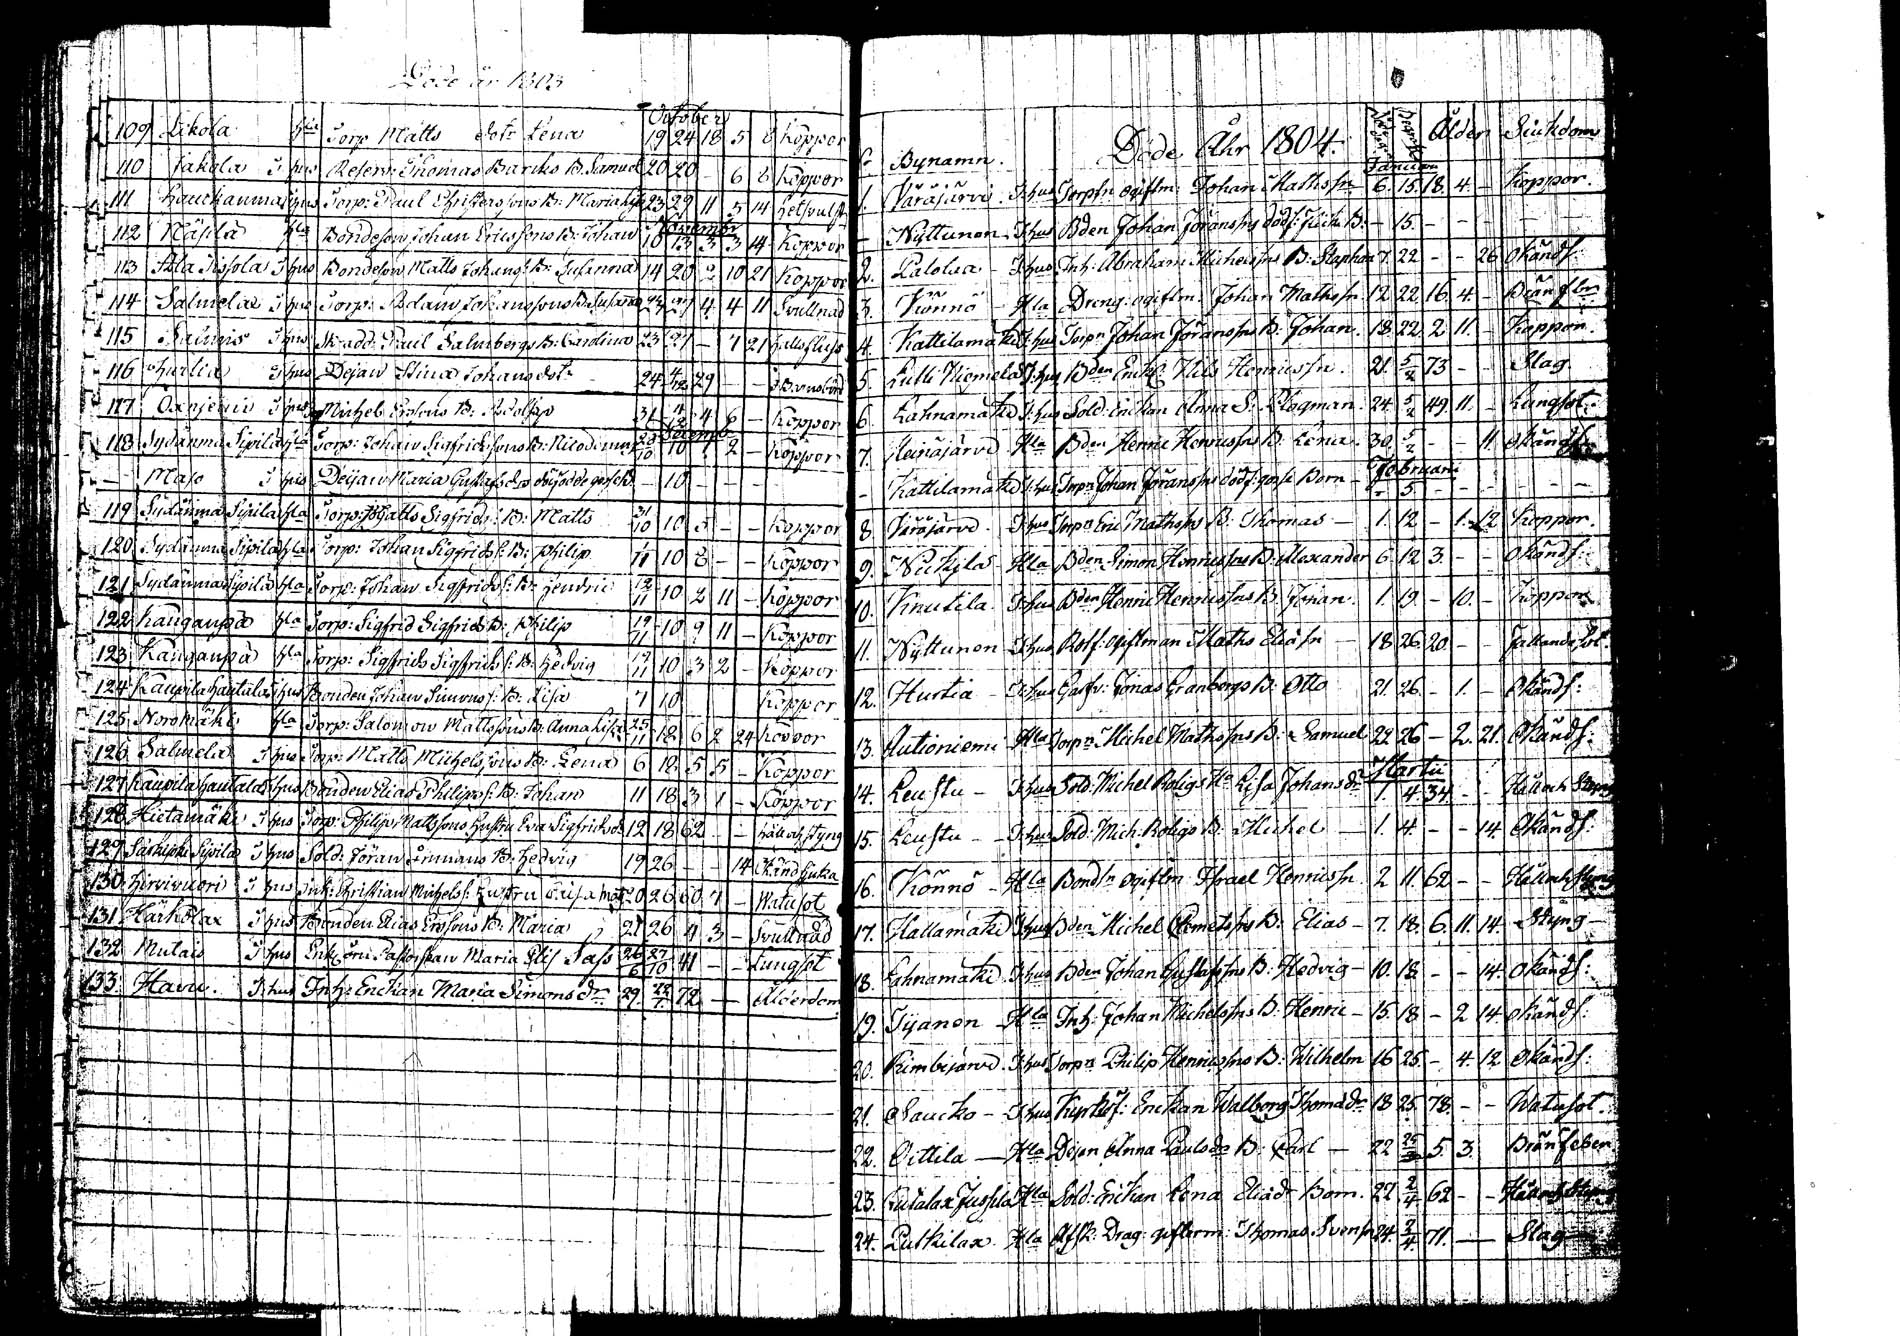 Döde år 1803
October
109 Likola Hla Torp Matts dotr Lena 19 24 18 5 8 Koppor
110 Jakola Thus Reserv: Thomas Bariks B. Samuel 20 20 - 6 8 Koppor
111 Thus Torp: Paul Christerssons B: Maria 23 29 11 5 14 hetsvulst
Novembr
112 Näsilä Hla Bondeson Johan Ericssons B: Johan 10 13 3 3 14 Koppor
113 Ala Jussola Thus Bondeson Matts Johans: B: Susanna 14 20 2 10 21 Koppor
114 Salmela Thus Torp: Adam Johanssons B: Susanna 23 27 4 4 11 Svullnad
115 Salmis Thus Skradd: Paul Salmbergs B: Carolina 23 27 - 7 21 hallsfluss
116 Hurtia Thus Dejan Stina Johansdotr 24 4/12 29 - - i Barnsbörd
117 Oxnjemi Thus Michel Erssons B: Adolph 31 4/12 4 6 - Koppor
Decemb
118 Sydänma Sipilä Hla Torp: Johan Sigfridssons B: Nicodemus 28/10 10 7 2 - Koppor
— Maso Thus Deijan Maria Gustafsdrs - 10 - - -
119 Sydänma Sipilä Hla Torp: Matts Sigfrids: B: Matts 31/10 10 5 - - Koppor
120 Sydänma Sipilä Hla Torp: Johan Sigfrids: B: Philip 1/11 10 8 - - Koppor
121 Sydänma Sipilä Hla Torp: Johan Sigfrids: B: Hendric 12/11 10 2 11 - Koppor
122 Kauganpä Hla Torp: Sigfrid Sigfrids B: Philip 19/11 10 9 11 - Koppor
123 Kauganpä Hla Torp: Sigfrids Sigfrids: B: Hedvig 19/11 10 3 2 - Koppor
124 Kaupila Hautala Thus Bonden Johan Simons: B: Lisa 7 10 Koppor
125 Noromäki Hla Torp: Salomon Mattssons B: Anna Lisa 25/11 18 6 2 24 Koppor
126 Salmela Thus Torp: Matts Michelssons B: Lena 6 18 5 5 - Koppor
127 Kaupila Hautala Thus Bonden Elias Philips: B: Johan 11 18 3 1 - Koppor
128 Hietamäki Thus Torp: Philip Mattssons Hustru Eva Sigfridsdr 12 18 62 - - håll och styng
129 Särkipki Sipilä Thus Sold: Jöran B: Hedvig 19 26 - - 14 Okänd sjuka
130 Hirvivuori Thus Inh: Christian Michels: Hustru Caisa Matsdr 20 26 60 7 - Watusot
131 Härkölax Thus Bonden Elias Erssons B: Maria 21 26 4 3 - Svullnad
132 Mulais Thus Enkefru Pastorskan Maria Elis Sass 26/6 27/10 41 - - Lungsot
133 Havu. Thus Inh: Enckan Maria Simonsdr 29 22/1 72 - - Ålderdom
Döde Åhr 1804.
No Bynamn. Ålder Siukdom
Januari
1. Päräjärvi. Thus Torpsn ogiftm: Johan Mathssn 6. 15. 18. 4. - Koppor.
- Nyttunen Thus Bden Johan Jöranssns dödf: flicke B. - 15. - - - -
2. Palolua Thus Inh: Abraham Michelsns B: Staphan 7. 22 - - 26 Okänds:
3. Könnö Hla Dreng: ogiftm: Johan Mathssn 12 22. 16. 4. - Bränslr
4. Kattilamäki Thus Torpn Johan Jöranssns B: Johan. 18. 22. 2. 11. - Koppor.
5. Lulli Niemelä Thus Bden Enckl Nils Henricssn. 21. 5/2 73 - - Slag.
6. Lahnamäki Thus Sold: Enckan Anna S: Plogman. 24 5/2 49. 11. - Lungsot.
7. Heinäjärvi Hla Bden Henric Henricssns B: Lena. 30. 5/2 - - 11 Okänds
Februari
- Kattilamäki Thus Torpn Johan Jöranssns dödf: gosse Barn - 5 - - - -
8. Kiröjärvi. Thus Torpn Eric Mathssns B: Thomas - 1. 12 - 1. 12 Koppor.
9. Nickylä Hla Bden Simon Henricssns B: Alexander 6. 12 3. - - Okänds:
10. Knutila. Thus Bden Henric Henricssns B: Johan. 1. 19 - 10. - Koppor.
11. Nyttunen Thus Rotf: Ogiftman Maths Eliæsn 18 26. 20. - - Fallandesot.
12. Hurtia - Thus Gästv: Jonas Granbergs B: Otto 21. 26. - 1. - Okänds:
13. Autioniemi Hla Torpn Michel Mathssns B: Samuel 22 26 - 2. 21. Okänds:
Martii
14. Leustu - Thus Sold: Michel Roligs Ha Lisa Johansdr 1. 4 34. - - Håll och Styng
15. Leustu - Thus Sold: Mich: Roligs B: Michel - 1. 4. - - 14. Okänds:
16. Könnö - Hla Bondsn ogiftm: Israel Henricssn. 2 11. 62 - - Håll och styng
17. Hallamäki Thus Bden Michel Clemetssns B: Elias - 7. 18. 6. 11. 14. Styng
18. Lahnamäki. Thus Bden Johan Gustafssns B: Hedvig - 10. 18 - - 14. Okänds:
19. Tyänen - Hla Inh: Johan Michelssns B: Henric - 15. 18 - 2 14. Okänds:
20. Kimbijärvi. Thus Torpn Philip Henricssns B: Wilhelm 16 25. - 4. 12 Okänds:
21. Saucko - Thus Enckan Walborg Thomædr 18 25. 78. - - Watusot.
22. Oittila - Hla Dejan Anna Paulsdr B: Carl - 22 25 5. 3. Bränfeber
23. Lulalax Jussila Hla Sold: Enckan Lena Eliædr Born. 27 2/4 62 - - Håll och Styng
24. Pulkilax. Hla Afsk: Drag: ogifterm: Thomas Svensn 24. 2/4 71. — Slag